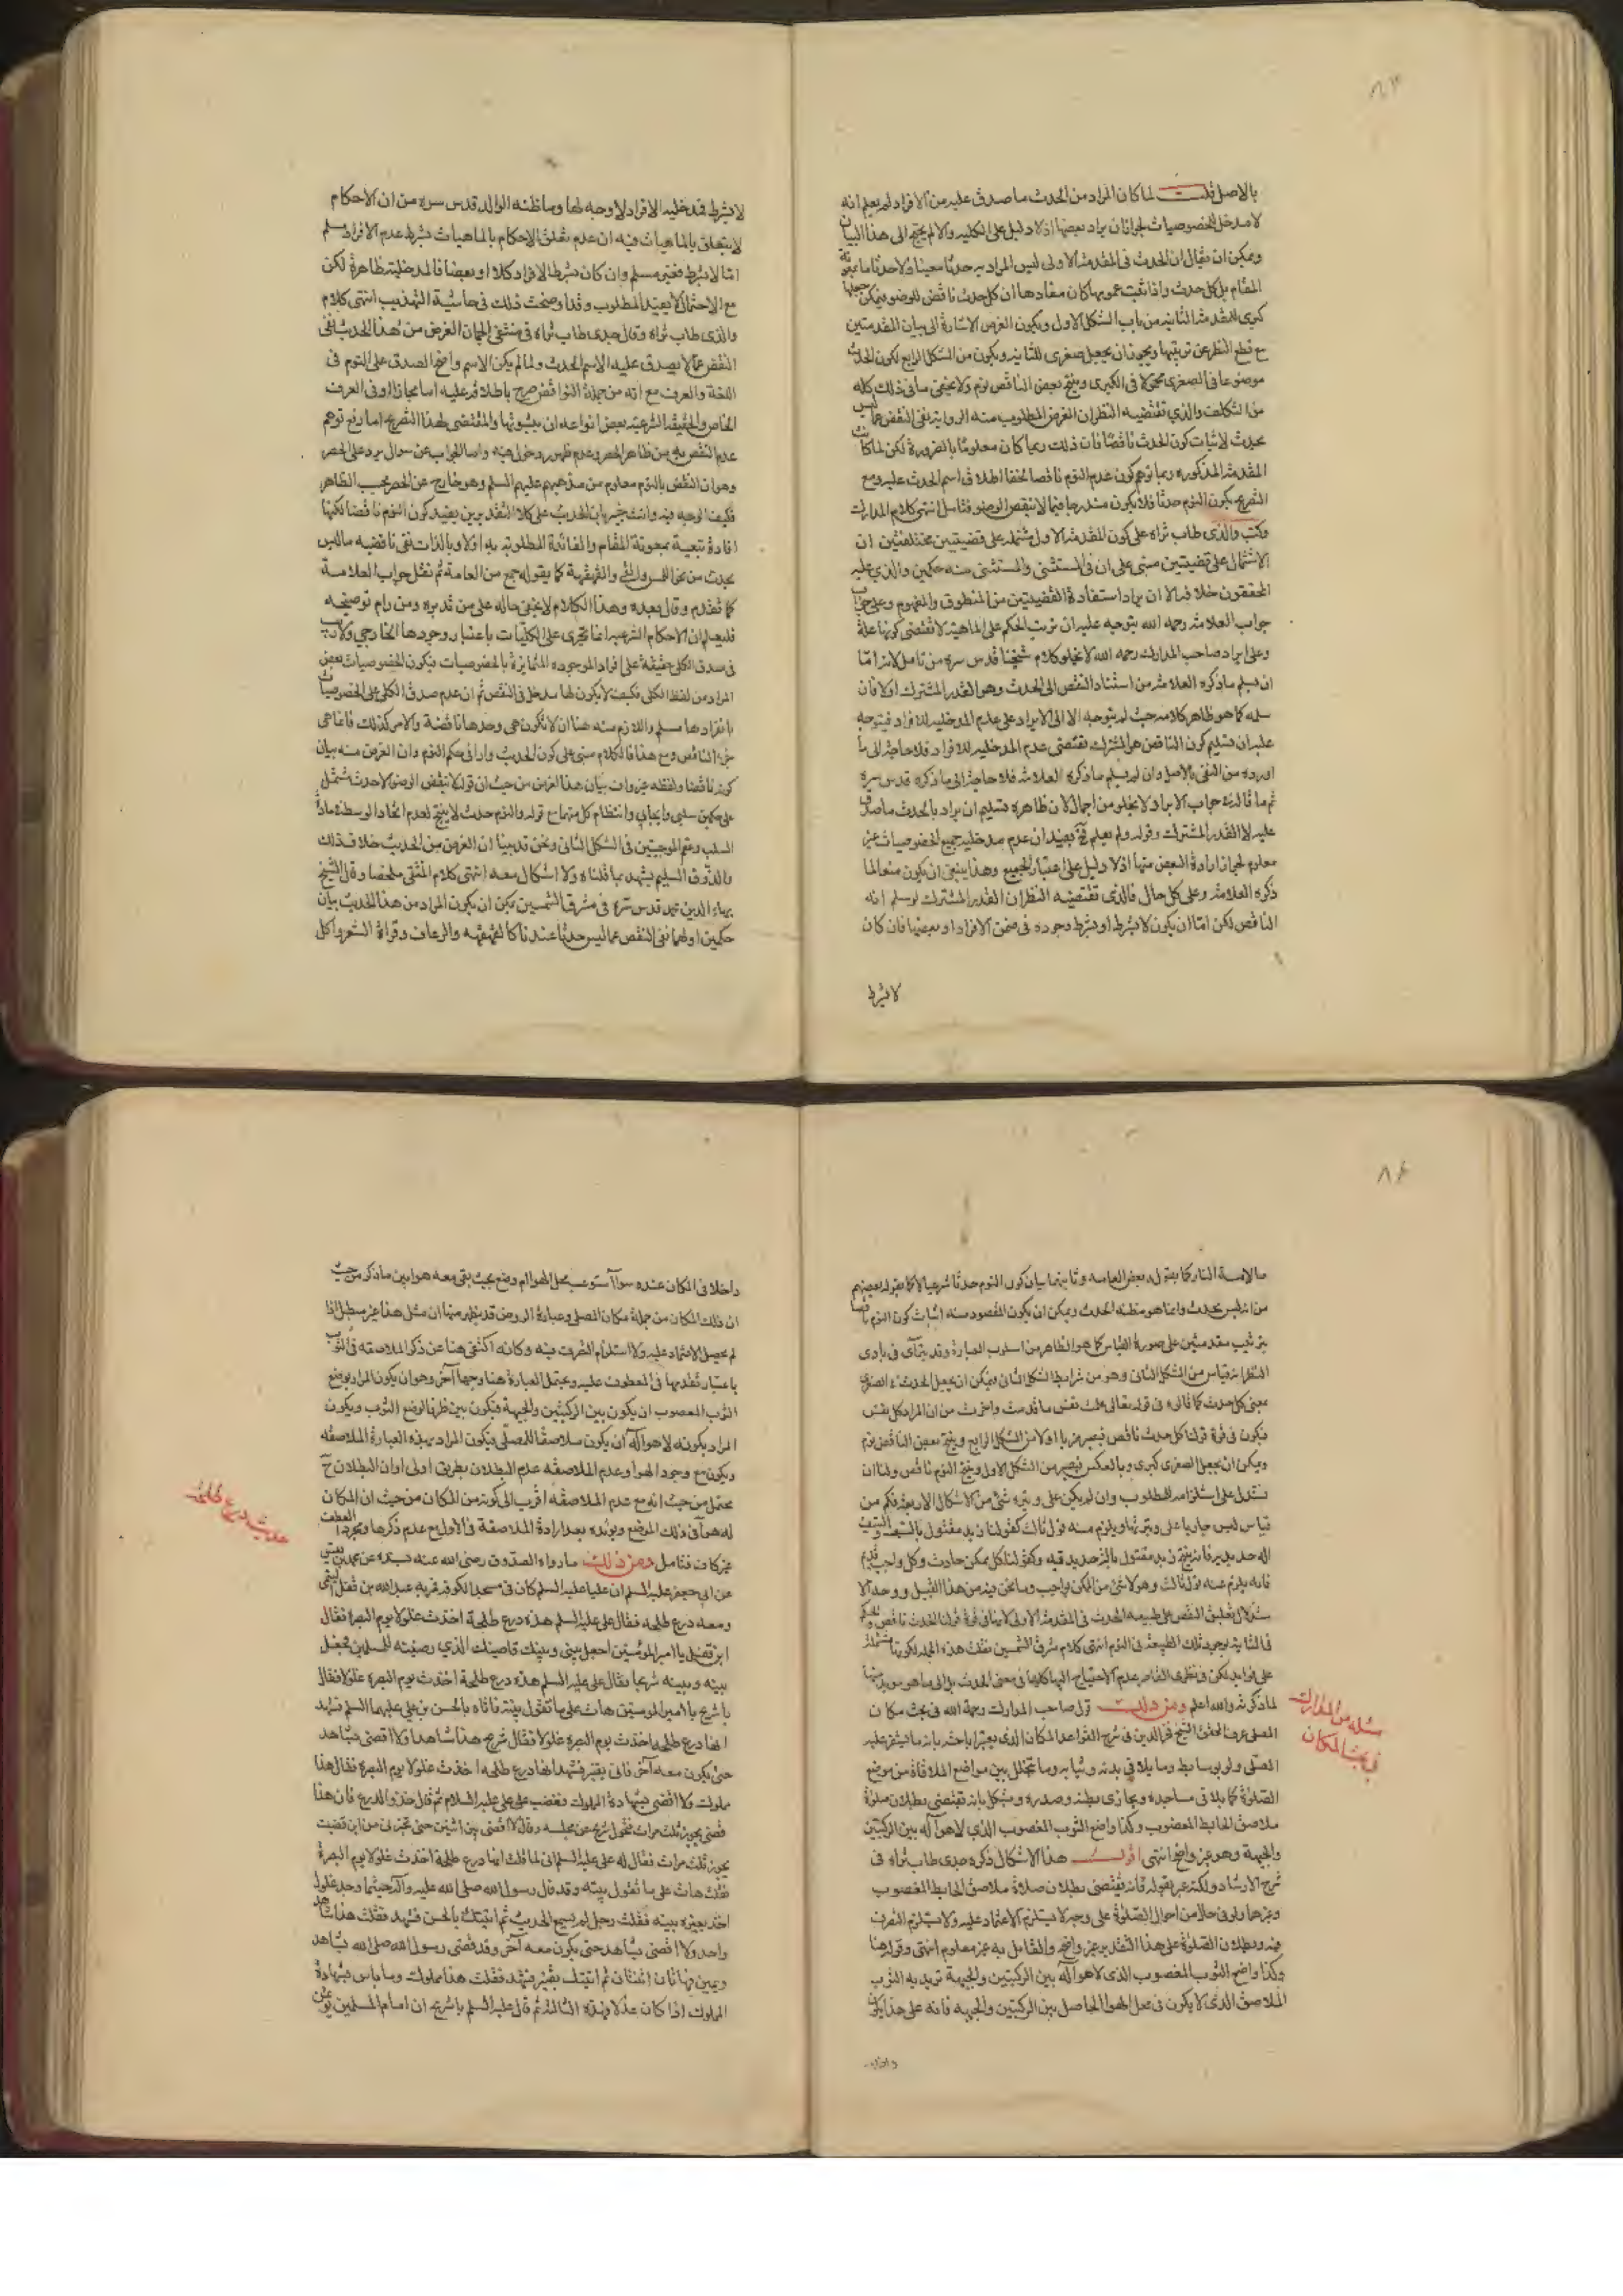 ٨٣
بالاصل قلت لما كان المراد من الحدث ما صدق عليه من الافراد لم يعلم انه
لا مدخل للخصوصيات لجواز ان يراد بعضها اذ لا دليل على الكليه والا لم يحتج الى هذا البيان
ويمكن ان يقال ان الحدث في المقدمة الاولى ليس المراد به حدثا معينا ولا حدثا ما بمعونة
المقام بل كل حدث واذا ثبت عمومها كان مفادها ان كل حدث ناقض للوضوء فيمكن جعلها
كبرى للمقدمة الثانية من باب الشكل الاول ويكون الغرض الاشارة الى بيان المقدمتين
مع قطع النظر عن ترتيبها ويجوز ان يجعل صغرى للثانية ويكون من الشكل الرابع لكون الحدث
موضوعا في الصغرى محمولا في الكبرى وينتج بعض الناقض نوم ولا يخفى ما في ذلك كله
من التكلف والذي تقتضيه النظر ان الغرض المطلوب منه الرواية نفى النقض عما ليس
بحدث لاثبات كون الحدث ناقضا فان ذلك ربما كان معلوما بالضرورة لكن لما كانت
المقدمة المذكورة ربما توهم كون عدم النوم ناقضا لخفاء اطلاق اسم الحدث عليه وقع
التصريح بكون النوم حدثا فلا يكون مندرجا فيما لا ينقض الوضوء فتامل انتهى كلام المدارك
وكتب والدي طاب ثراه على كون المقدمة الاولى مشتملة على قضيتين مختلفتين ان
الاشتمال على قضيتين مبنى على ان في المستثنى والمستثنى منه حكمين والذي عليه
المحققون خلافه الا ان يراد استفادة القضيتين من المنطوق والمفهوم وعلى جواب
جواب العلامة رحمه الله يتوجه عليه ان ترتب الحكم على الماهية لا تقتضى كونها علة
وعلى ايراد صاحب المدارك رحمه الله لا يخلو كلام شيخنا قدس سره من تامل لانه اما
ان يسلم ما ذكره العلامة من استناد النقض الى الحدث وهو القدر المشترك اولا فان
سلمه كما هو ظاهر كلامه حيث لم يتوجه الا الى الايراد على عدم المدخلية للافراد فيتوجه
عليه ان تسليم كون الناقض هو المشترك تقتضى عدم المدخلية للافراد فلا حاجة الى ما
اورده من النفى بالاصل وان لم يسلم ما ذكره العلامة فلا حاجة الى ما ذكره قدس سره
ثم ما قاله في جواب الايراد لا يخلو من اجمال لان ظاهره تسليم ان يراد بالحدث ما صدق
عليه لا القدر المشترك وقوله ولم يعلم فيه بعيد ان عدم مدخلية جميع الخصوصيات غير
معلوم لجواز ارادة البعض منها اذ لا دليل على اعتبار الجميع وهذا ينبغى ان يكون منعا لما
ذكره العلامة وعلى كل حال فالذى تقتضيه النظر ان القدر المشترك لو سلم انه
الناقض لكن اما ان يكون لا بشرط او بشرط وجوده في ضمن الافراد او بعضها فان كان
لا بشرط
لا بشرط فمدخلية الافراد لا وجه لها وما ظنه الوالد قدس سره من ان الاحكام
لا يتعلق بالماهيات فيه ان عدم تعلق الاحكام بالماهيات بشرط عدم الافراد مسلم
اما لا بشرط فغير مسلم وان كان بشرط الافراد كلا او بعضا فالمدخلية ظاهرة لكن
مع الاحتمال لا يفيد المطلوب وقد اوضحت ذلك في حاشية التهذيب انتهى كلام
والدى طاب ثراه وقال جدى طاب ثراه في منتقى الجمان الغرض من هذا الحديث نفى
النقض عما لا يصدق عليه الاسم الحدث ولما لم يكن الاسم واضح الصدق على النوم في
اللغة والعرف مع انه من جملة النواقض صرح باطلاقه عليه اما مجازا او في العرف
الخاص والحقيقة الشرعية بعض انواعه ان بثبوتها والمقتضى لهذا التصريح اما رفع توهم
عدم النقض به من ظاهر الحصر وعدم ظهور دخوله فيه واما الجواب عن سوال يرد على الحصر
وهو ان النقض بالنوم معلوم من مذهبهم عليهم السلم وهو خارج عن الحصر بحسب الظاهر
فكيف الوجه فيه وانت خبير بان الحديث على كلا التقديرين يفيد كون النوم ناقضا لكنها
افادة تبعية بمعونة المقام والفائدة المطلوبة به اولا وبالذات نفى ناقضيه ما ليس
بحدث من نحو القئ والقهقهة كما يقوله جمع من العامة ثم نقل جواب العلامة
كما تقدم وقال بعده وهذا الكلام لا يخفى حاله على من تدبره ومن رام توضيحه
فليعلم ان الاحكام الشرعيه انما تجرى على الكليات باعتبار وجودها الخارجي ولا ريب
في صدق الكلى حقيقة على افراد الموجوده المتمايزة بالخصوصيات فيكون الخصوصيات بعض
المراد من لفظ الكلى فكيف لا يكون لها مدخل في النقض ثم ان عدم صدق الكلى على الخصوصيات
بانفرادها مسلم واللازم منه هنا ان لا تكون هى وحدها ناقضة والامر كذلك فانما هى
جزء الناقض ومع هذا فالكلام مبنى على كون الحديث واردا في حكم النوم وان الغرض منه بيان
كونه ناقضا ولفظه غير وات ببيان هذا الغرض من حيث ان قوله لا ينقض الوضوء الا حدث يشتمل
على حكمين سلبى وايجابي وانتظام كل منهما مع قوله والنوم حدث لا ينتج لعدم اتحاد الوسط في مادة
السلب وعقم الموجبتين في الشكل الثانى ونحن قد بينا ان الغرض من الحديث خلاف ذلك
والذوق السليم يشهد بما قلناه ولا اشكال معه انتهى كلام المنتقى ملخصا وقال الشيخ
بهاء الدين محمد قدس سره في مشرق الشمسين يمكن ان يكون المراد من هذا الحديث بيان
حكمين اولهما نفى النقض عما ليس حدثا عندنا كالقهقهه والرعاف وقراءة الشعر واكل
٨٤
ما لامسة النار كما يقوله بعض العامه وثانيهما بيان كون النوم حدثا شرعيا لا كما يقوله بعضهم
من انه ليس بحدث وانما هو مظنه الحدث ويمكن ان يكون المقصود منه اثبات كون النوم ناقضا
بترتيب مقدمتين على صورة القياس كما هو الظاهر من اسلوب العبارة وقد يترآى في بادى
النظر انه قياس من الشكل الثانى وهو من شرايط الشكل الثانى ويمكن ان يجعل الحدث في الصغرى
بمعنى كل حدث كما قالوه في قوله تعالى علمت نفس ما قدمت واخرت من ان المراد كل نفس
فيكون في قوة قولنا كل حدث ناقض فيصير ضربا اولا من الشكل الرابع وينتج بعض الناقض نوم
ويمكن ان يجعل الصغرى كبرى وبالعكس فيصير من الشكل الاول وينتج النوم ناقض ولنا ان
نستدل على استلزامه للمطلوب وان لم يكن على وتيرة شئ من الاشكال الاربعة فكم من
قياس ليس جاريا على وتيرتها ويلزم منه قول ثالث كقولنا زيد مقتول بالسيف والسيف
آلة حديديه فانه ينتج زيد مقتول بآلة حديديه وكقولنا كل ممكن حادث وكل واجب قديم
فانه يلزم منه قول ثالث وهو لا شئ من الممكن بواجب وما نحن فيه من هذا القبيل ووجه الا
ستدلال تعليق النقض على طبيعه الحدث في المقدمة الاولى لا ينافي قوة قولنا الحدث ناقض والحكم
في الثانية بوجود تلك الطبيعة في النوم انتهى كلام مشرق الشمسين نقلت هذه الجمله لكونها مشتملة
على فوايد لكن في نظرى القاصر عدم الاحتياج اليها كلها في معنى الحدث بل الى ما هو مويد منها
لما ذكرته والله اعلم ومن ذلك قول صاحب المدارك رحمة الله في بحث مكان
المصلى عرف المحقق الشيخ فخر الدين في شرح القواعد المكان الذي يعتبر اباحته بانه ما يستقر عليه
المصلى ولو بوسايط وما يلاقى بدنه وثيابه وما يتخلل بين مواضع الملاقاة من موضع
الصلوة كما يلاقى مساجده ويحاذى بطنه وصدره ويشكل بانه تقتضى بطلان صلوة
ملاصق الحايط المغصوب وكذا واضع الثوب المغصوب الذي لا هوآ له بين الركبتين
والجبهة وهو غير واضح انتهى اقول هذا الاشكال ذكره جدى طاب ثراه في
شرح الارشاد ولكنه عبر بقوله فانه تقتضى بطلان صلاة ملاصق الحايط المغصوب
وغيرها ولو في حال من احوال الصلوة على وجه لا يستلزم الاعتماد عليه ولا يستلزم التصرف
فيه وبطلان الصلوة على هذا التقدير غير واضح والقائل به غير معلوم انتهى وقوله هنا
وكذا واضع الثوب المغصوب الذى لا هوآ له بين الركبتين والجبهة تريد به الثوب
الملاصق الذى لا يكون في محل الهوا الحاصل بين الركبتين والجبهه فانه على هذا يكون
داخلا
مسئله من المدارك
في بحث المكان
داخلا في المكان عنده سوآ استوعب محل الهوا ام وضع بحيث بقى معه هوا بين ما ذكر من حيث
ان ذلك المكان من جملة مكان المصلى وعبارة الروض قد يظهر منها ان مثل هذا غير مبطل اذا
لم يحصل الاعتماد عليه ولا استلزام التصرف فيه وكانه اكتفى هنا عن ذكر الملاصقه في الثوب
باعتبار تقدمها في المعطوف عليه ويحتمل العبارة هنا وجها آخر وهو ان يكون المراد بوضع
الثوب المغصوب ان يكون بين الركبتين والجبهة فيكون بين ظرفا لوضع الثوب ويكون
المراد بكونه لا هوآ له ان يكون ملاصقا للمصلى فيكون المراد بهذه العبارة الملاصقه
ويكون مع وجود الهوآ وعدم الملاصقه عدم البطلان بطريق اولى او ان البطلان ح
يحتمل من حيث انه مع عدم الملاصقه اقرب الى كونه من المكان من حيث ان المكان
له هوآ في ذلك الموضع ويؤيده بعد ارادة الملاصقة في الاول مع عدم ذكرها ومجرد العطف
غير كاف فتامل ومن ذلك ما رواه الصدوق رضى الله عنه بسنده عن محمد بن قيس
عن ابى جعفر عليه السلم ان عليا عليه السلم كان في مسجد الكوفه فمر به عبد الله بن قفل التيمى
ومعه درع طلحه فقال على عليه السلم هذه درع طلحة اخذت غلولا يوم البصرة فقال
ابن قفل يا امير المؤمنين اجعل بينى وبينك قاضيك الذي رضيته للمسلمين فجعل
بينه وبينه شريحا فقال على عليه السلم هذه درع طلحة اخذت يوم البصره غلولا فقال
يا شريح يا امير المومنين هات على ما تقول بينة فاتاه بالحسن بن علي عليهما السلم فشهد
انها درع طلحه اخذت يوم البصره غلولا فقال شريح هذا شاهد ولا اقضى بشاهد
حتى يكون معه آخر فاتى بقنبر فشهد انها درع طلحه اخذت غلولا يوم البصره فقال هذا
مملوك ولا اقضى بشهادة المملوك فغضب على عليه السلام ثم قال خذوا الدرع فان هذا
قضى بجور ثلث مرات فتحول شريح عن مجلسه وقال لا اقضى بين اثنين حتى تخبرنى من اين قضيت
بجور ثلث مرات فقال له على عليه السلم انى لما قلت انها درع طلحة اخذت غلولا يوم البصرة
فقلت هات على ما تقول بينه وقد قال رسول الله صلى الله عليه وآله حيثما وجد غلول
اخذ بغير بينه فقلت رجل لم يسمع الحديث ثم اتيتك بالحسن فشهد فقلت هذا شاهد
واحد ولا اقضى بشاهد حتى يكون معه آخر وقد قضى رسول الله صلى الله بشاهد
ويمين فهاتان اثنتان ثم اتيتك بقنبر فشهد فقلت هذا مملوك وما باس بشهادة
المملوك اذا كان عدلا وهذه الثالثة ثم قال عليه السلم يا شريح ان امام المسلمين يؤتمن
حديث درع طلحة